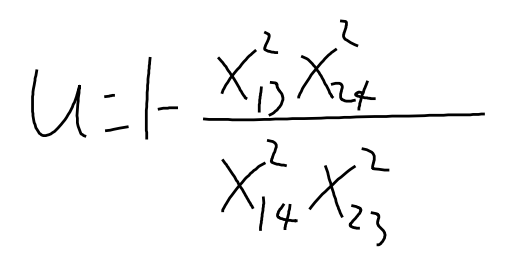 u=1-\frac{x_{13}^2 x_{24}^2}{x_{14}^2 x_{23}^2}